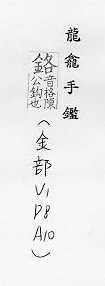 龍龕手鑑
鉻音格陳公鈎也(金部V1P8A10)